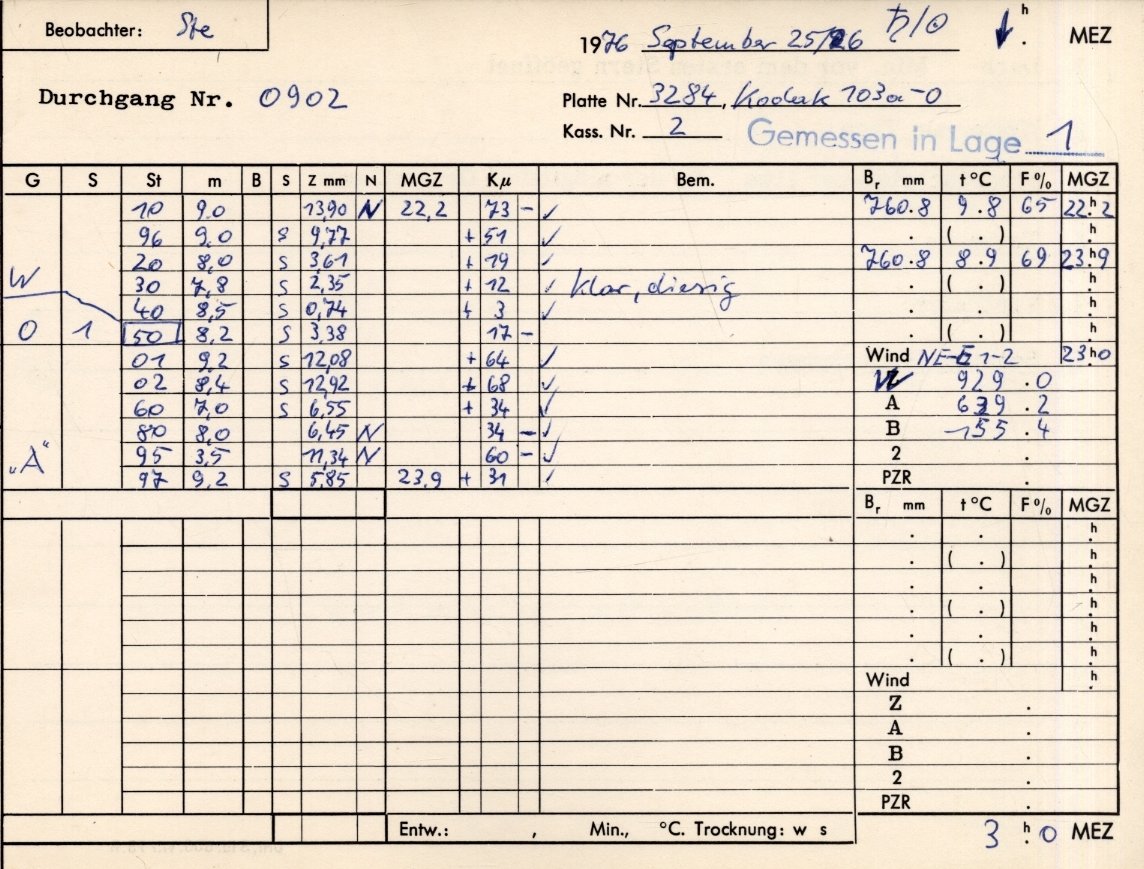 Beobachter: Ste
1976 September 25/26 ♄/☉ h . MEZ
Durchgang Nr. 0902
Platte Nr. 3284, Kodak 103a-O
Kass. Nr. 2 Gemessen in Lage 1
G S St m B S Z mm N MGZ Kμ Bem. Br mm t °C F % MGZ
10 9.0 13,90 N 22,2 73 - ✓ 760.8 9.8 65 22h2
96 9,0 S 9,77 + 51 ✓ . ( . ) h
20 8,0 S 3,61 + 19 ✓ 760.8 8.9 69 23h9
W 30 7,8 S 2,35 + 12 ✓ klar, diesig . ( . ) h
40 8,5 S 0,74 + 3 ✓ . . h
O 1 50 8,2 S 3,38 17 - . ( . ) h
01 9,2 S 12,08 + 64 ✓ Wind NE-E 1-2 23h0
02 8,4 S 12,92 + 68 ✓ 929.0
60 7,0 S 6,55 + 34 ✓ A 639.2
80 8,0 6,45 N 34 - ✓ B -155.4
"A" 95 3,5 11,34 N 60 - ✓ 2 .
97 9,2 S 5,85 23,9 + 31 ✓ PZR .
Br mm t °C F % MGZ
. . h
. ( . ) h
. . h
. ( . ) h
. . h
. ( . ) h
Wind h
Z .
A .
B .
2 .
PZR .
Entw.: , Min., °C. Trocknung: w s
3 h 0 MEZ